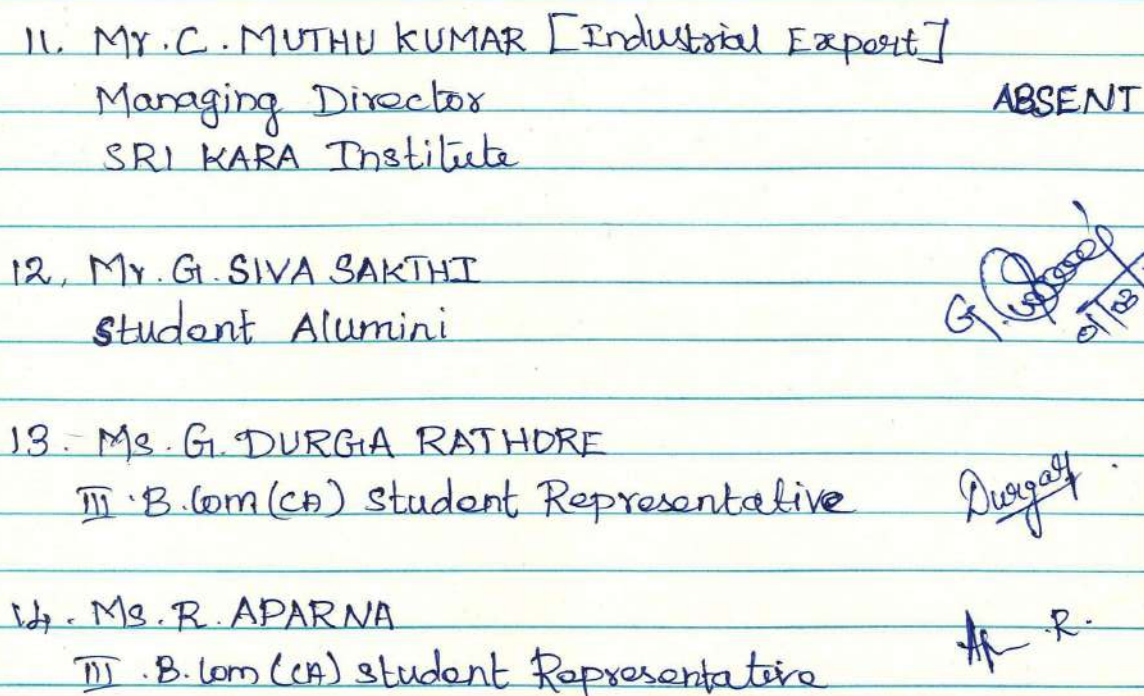 11. Mr. C. MUTHU KUMAR [Industrial Expert]
Managing Director
ABSENT
SRI KARA Institute
12, Mr. G. SIVA SAKTHI
Student Alumini
G.
13. Ms. G. DURGA RATHORE
III. B.Com (CA) Student Representative
Durga
14. Ms. R. APARNA
R.
III. B.Com (CA) Student Representative